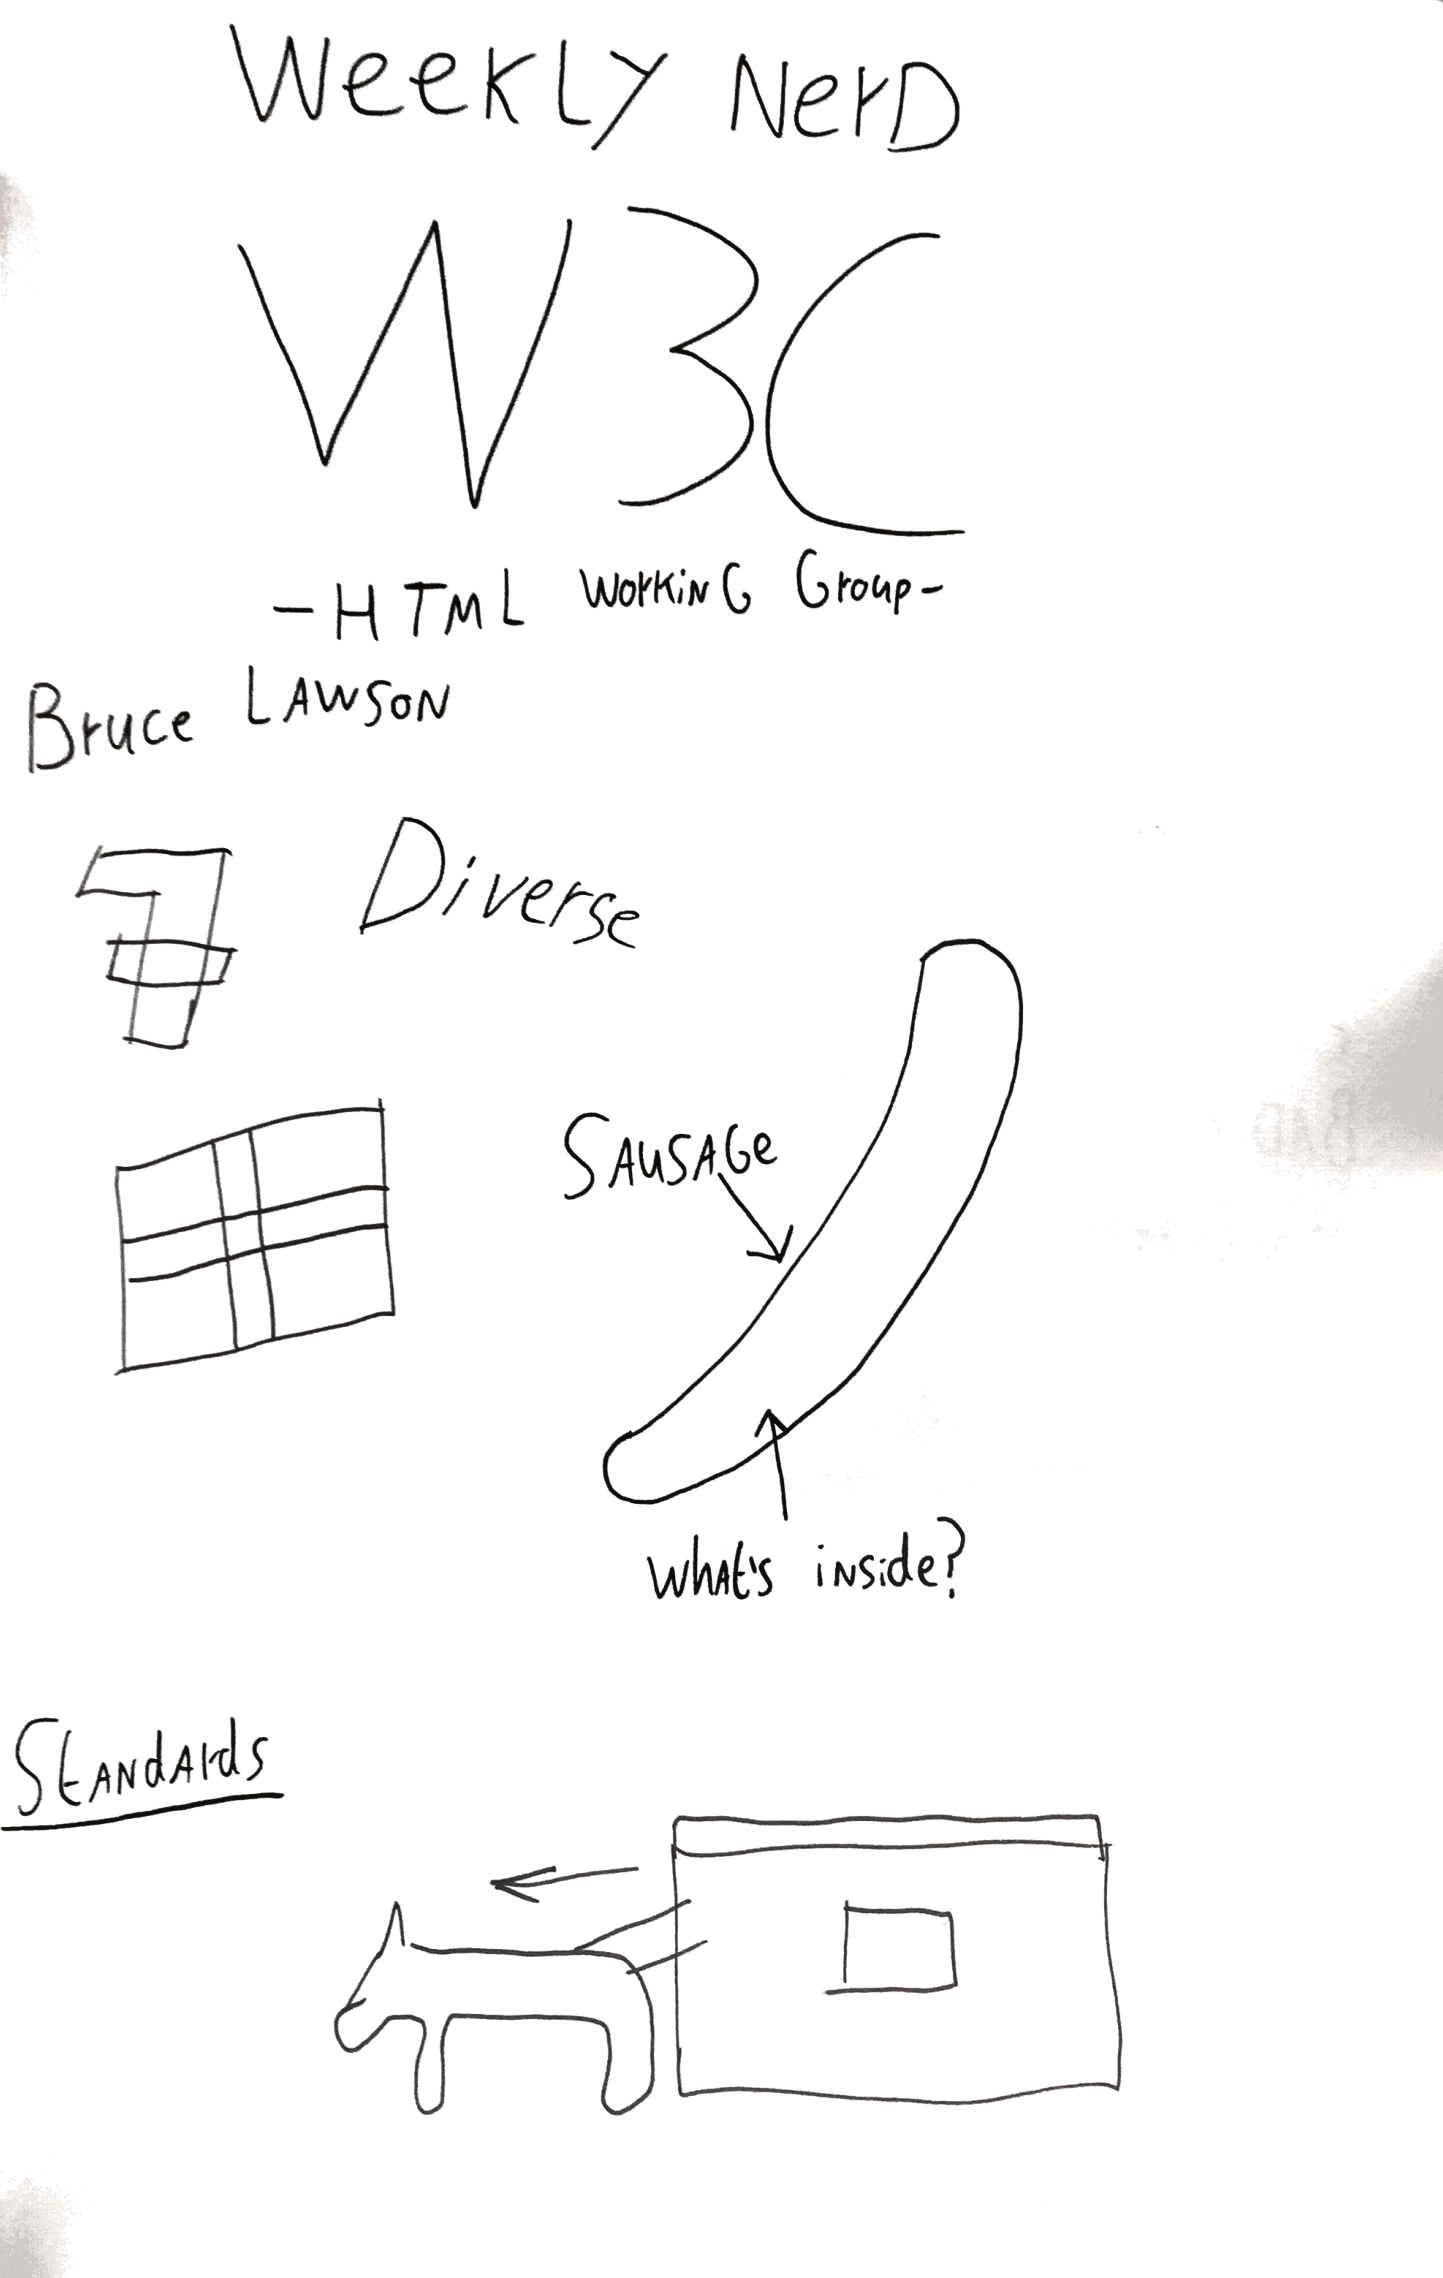 Weekly Nerd
W3C
-HTML Working Group-
Bruce Lawson
7 Diverse
Sausage
What's inside?
Standards